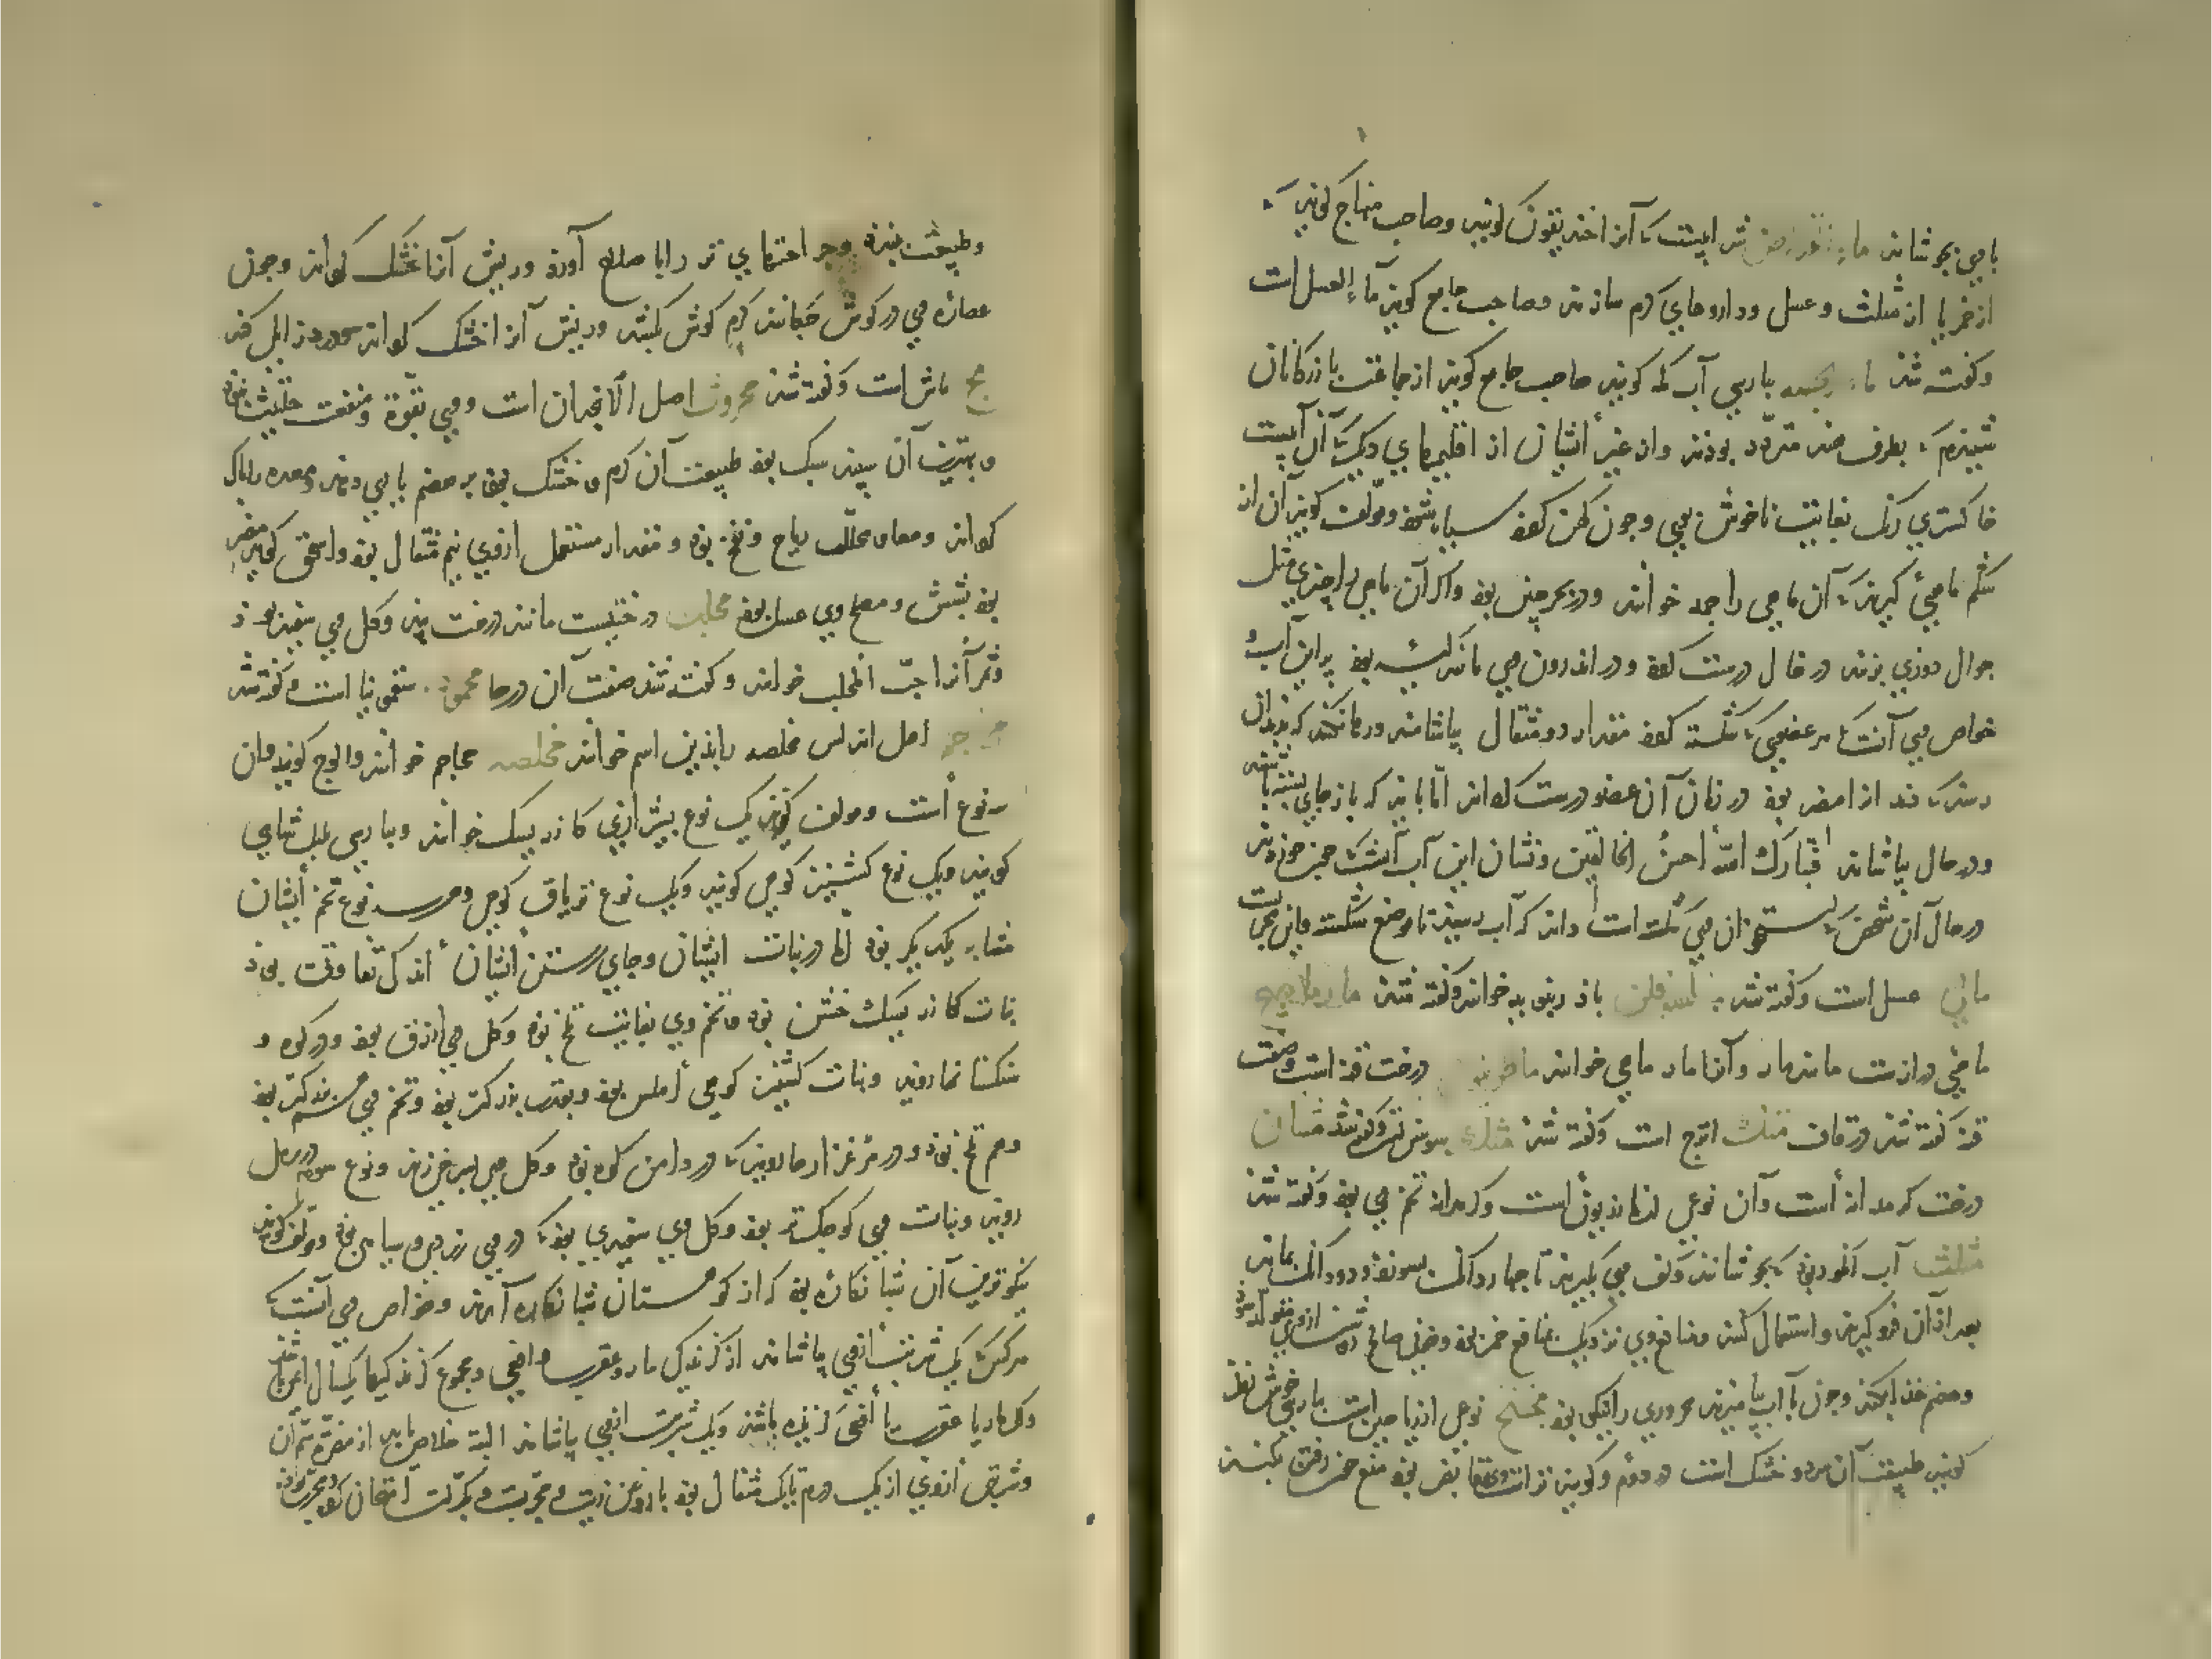 با می بجوشانند ماء شرابیست که آنرا خندیقون گویند وصاحب منهاج گوید که
از خمر یا از مثلث و عسل و داروهای گرم سازند و صاحب جامع گوید ماء العسل است
و گفته شد ماء بپارسی آب کمه گویند صاحب جامع گوید از جماعت بازرگانان
شنیدم که بطرف هند متردد بودند و از غیر ایشان از اقلیمهای دیگر که آن آبیست
خاکستری رنگ بغایت ناخوش بوی و چون کهن گردد سیاه شود و مولف گوید آن از
شکم ماهیی گیرند که آن ماهی را جمه خوانند و در بحر چین بود و اگر آن ماهی را چیزی مثل
جوال دوزی بزنند در حال درست گردد و در اندرون وی مانند کیسه بود پر از این آب و
خواص وی آنست که هر عضوی که شکسته گردد مقدار دو مثقال بیاشامند و رها نکنند که بدندان
رسد که دندانرا مضر بود در زمان آن عضو درست گرداند اما باید که باز جای بسته باشند
و در حال بیاشامند فتبارک الله احسن الخالقین و نشان این آب آنست که چون خورده شد
در حال آن شخص که استخوان وی شکسته است داند که آب رسید تا موضع شکسته و این مجربست
عسل است و گفته شد باذرنبویه خوانند و گفته شد
ماهیی درازست مانند مار و آنرا مار ماهی خوانند درخت قنه است و صفت
قنه گفته شد در قاف متک اترج است و گفته شد سوس است و گفته شد مثنان
درخت کرمدانه است و آن نوعی از مازریون است و کرمدانه تخم وی بود و گفته شد
مثلث آب انگور بود که بجوشانند و کف وی بگیرند تا چهار دانگ بسوزد و دو دانگ بماند
بعد از آن فرو گیرند و استعمال کنند و منافع وی نزدیک بمنافع خمر بود و خونی صالح از وی متولد شود
و هضم غذا بکند و چون با آب بیامیزند محروری را نیکو بود نوعی از ریاحین است بپارسی خوش نظر
گویند طبیعت آن سرد و خشک است در دوم و گویند تر است و قابض بود منع خون رفتن بکند
و طبیعت ببندد و جراحتهای تر را با صلاح آورد و ریش آنرا خشک گرداند و چون
عصاره وی در گوش چکانند کرم گوش بکشد و ریش آنرا خشک گرداند و درد زایل کند
مج ماش است و گفته شد محروث اصل الانجدان است و وی بقوة و منفعت حلتیث بود
و بهترین آن سپید سبک بود طبیعت آن گرم و خشک بود بد هضم یاری دهد و معده را پاک
گرداند و معا محلل ریاح و نفخ بود و مقدار مستعمل از وی نیم مثقال بود و اسحق گوید مضر
بود بشش و مصلح وی عسل بود محلب درختیست مانند درخت بید و گل وی سفید بود
و ثمر آنرا حب المحلب خوانند و گفته شد صفت آن در حا محموده سقمونیا است و گفته شد
اهل اندلس مخلصه را بدین اسم خوانند مخلصه حجاجم خوانند والوج گویند و آن
سه نوع است و مولف گوید یک نوع بشیرازی کازر بیسک خوانند و بپارسی بلبل شاهی
گویند و یک نوع کشنیز کوهی گویند و یک نوع تریاق کوهی و هر سه نوع تخم ایشان
مشابه یکدیگر بود اما در نبات ایشان و جای رستن ایشان اندکی تفاوت بود
نبات کازر بیسک خشن بود و تخم وی بغایت تلخ بود و گل وی ازرق بود و در کوه و
سنگستانها روید و نبات کشنیز کوهی املس بود و بقدر بزرگتر بود و تخم وی هم بزرگتر بود
و هم تلخ بود و در مرغزارها روید که در دامن کوه بود و گل وی بسرخی زند و نوع سوم در رمل
روید و نبات وی کوچکتر بود و گل وی سفیدی بود که در وی زردی و سیاهی بود و مولف گوید
نیکوترین آن شبانکاره بود که از کوهستان شبانکاره آرند و خواص وی آنست که
هر کس که یک شربت از وی بیاشامد از گزندگی مار و عقرب و افعی و مجموع گزندگیها یکسال ایمن باشد
و اگر مار یا عقرب یا افعی گزیده باشد و یک شربت از وی بیاشامد البته خلاص یابد از مضرت سم آن
و شربتی از وی از یک درم تا یک مثقال بود با روغن زیت و مجربست و بکرات امتحان کرده